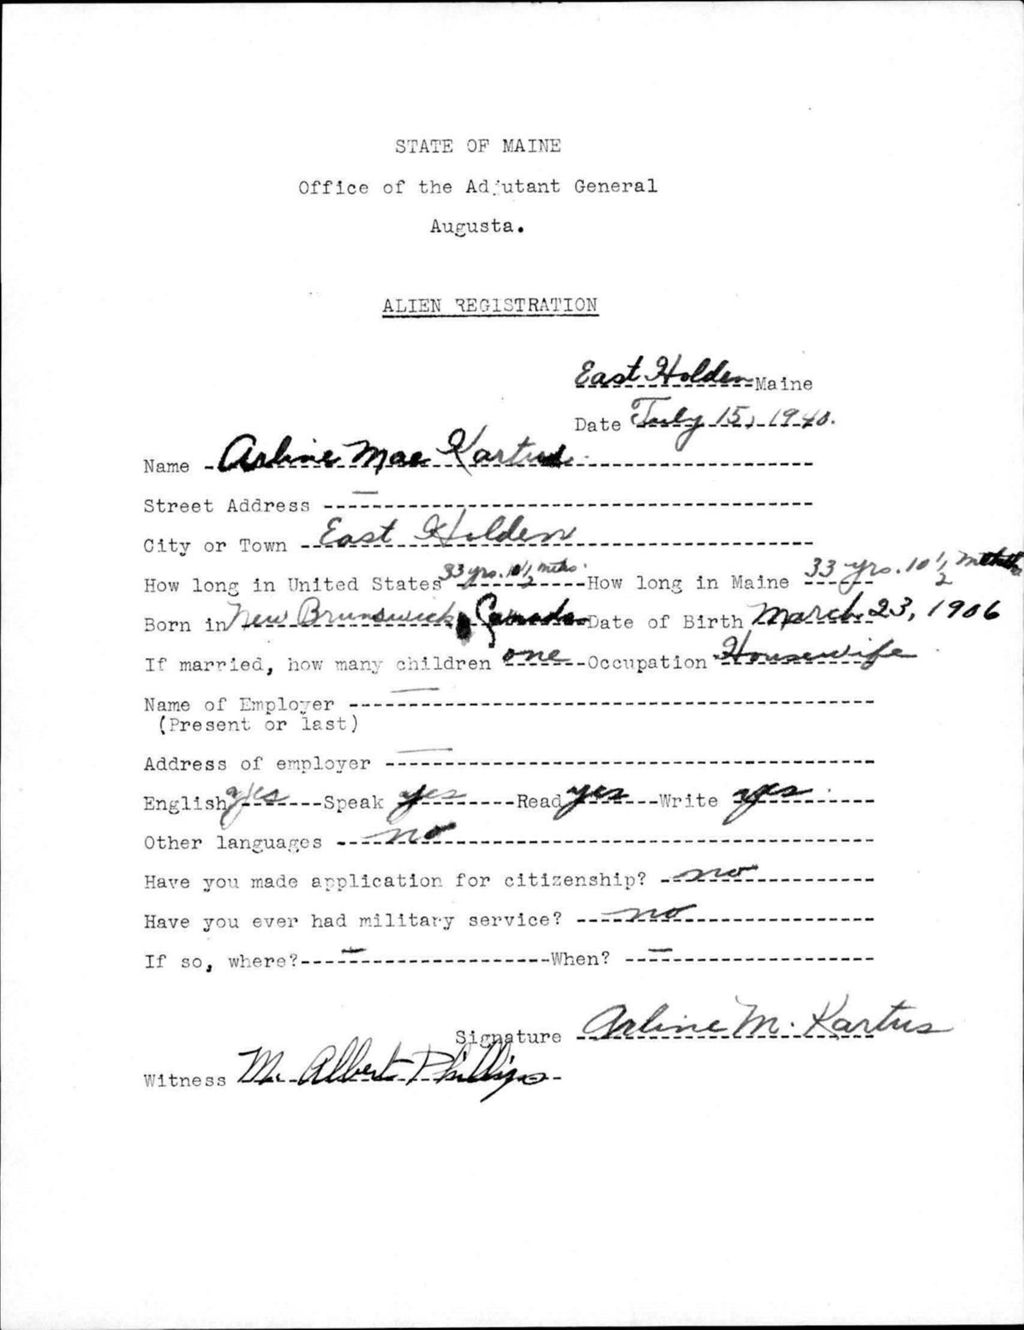 STATE OF MAINE
Office of the Adjutant General
Augusta.
ALIEN REGISTRATION
East Holden Maine
Date July 15, 1940.
Name Arline Mae Kartus
Street Address —
City or Town East Holden
How long in United States 33 yrs. 10 1/2 mths. How long in Maine 33 yrs. 10 1/2
Born in New Brunswick, Canada Date of Birth March 23, 1906
If married, how many children one Occupation Housewife
Name of Employer —
(Present or last)
Address of employer —
English yes Speak yes Read yes Write yes
Other languages no
Have you made application for citizenship? no
Have you ever had military service? no
If so, where? — When? —
Signature Arline M. Kartus
Witness M. Albert Phillips